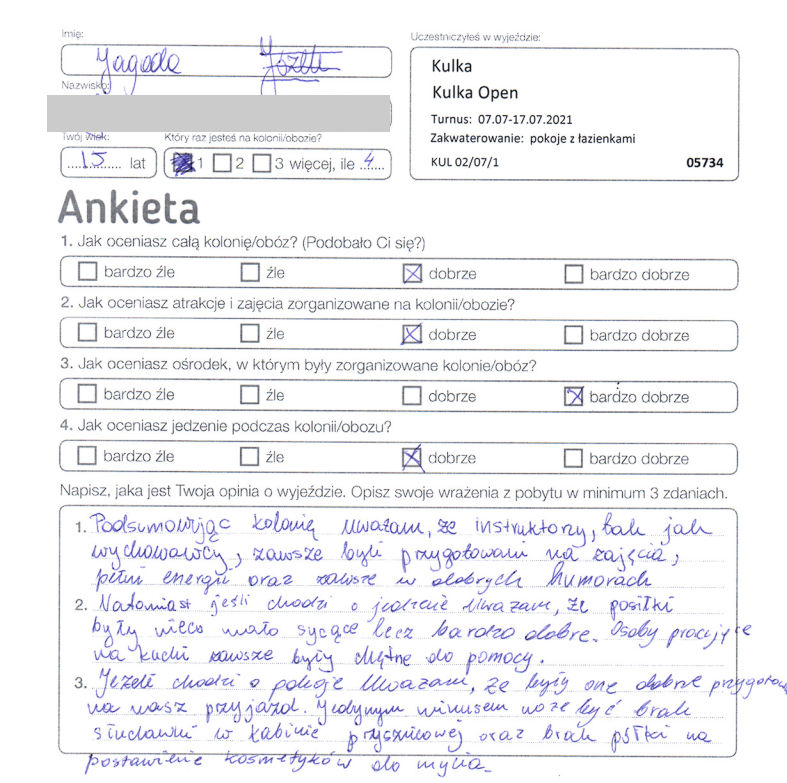 Imię:
Jagoda Józefa
Nazwisko:
Twój wiek:
15 lat
Który raz jesteś na kolonii/obozie?
1 2 3 więcej, ile 4
Uczestniczyłeś w wyjeździe:
Kulka
Kulka Open
Turnus: 07.07-17.07.2021
Zakwaterowanie: pokoje z łazienkami
KUL 02/07/1 05734
Ankieta
1. Jak oceniasz całą kolonię/obóz? (Podobało Ci się?)
bardzo źle źle dobrze bardzo dobrze
2. Jak oceniasz atrakcje i zajęcia zorganizowane na kolonii/obozie?
bardzo źle źle dobrze bardzo dobrze
3. Jak oceniasz ośrodek, w którym były zorganizowane kolonie/obóz?
bardzo źle źle dobrze bardzo dobrze
4. Jak oceniasz jedzenie podczas kolonii/obozu?
bardzo źle źle dobrze bardzo dobrze
Napisz, jaka jest Twoja opinia o wyjeździe. Opisz swoje wrażenia z pobytu w minimum 3 zdaniach.
1. Podsumowując kolonię uważam, że instruktorzy, tak jak
wychowawcy, zawsze byli przygotowani na zajęcia,
pełni energii oraz zawsze w dobrych humorach
2. Natomiast jeśli chodzi o jedzenie uważam, że posiłki
były nieco mało sycące lecz bardzo dobre. Osoby pracujące
na kuchi zawsze były chętne do pomocy.
3. Jeżeli chodzi o pokoje uważam, że były one dobrze przygotow
na nasz przyjazd. Jedynym minusem może być brak
słuchawki w kabinie prysznicowej oraz brak półki na
postawienie kosmetyków do mycia.